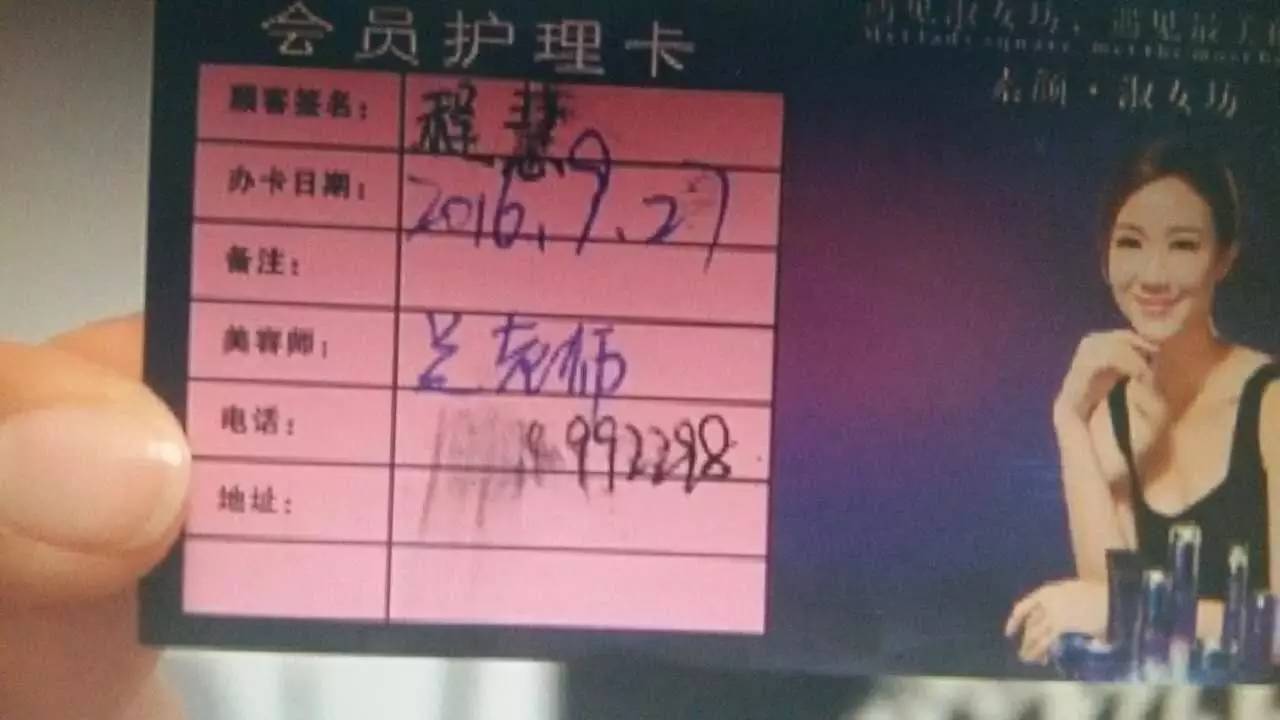 会员护理卡
遇见淑女坊，遇见最美
素颜·淑女坊
顾客签名： 程慧
办卡日期： 2016.9.27
备注：
美容师： 兰老师
电话： 992298
地址：